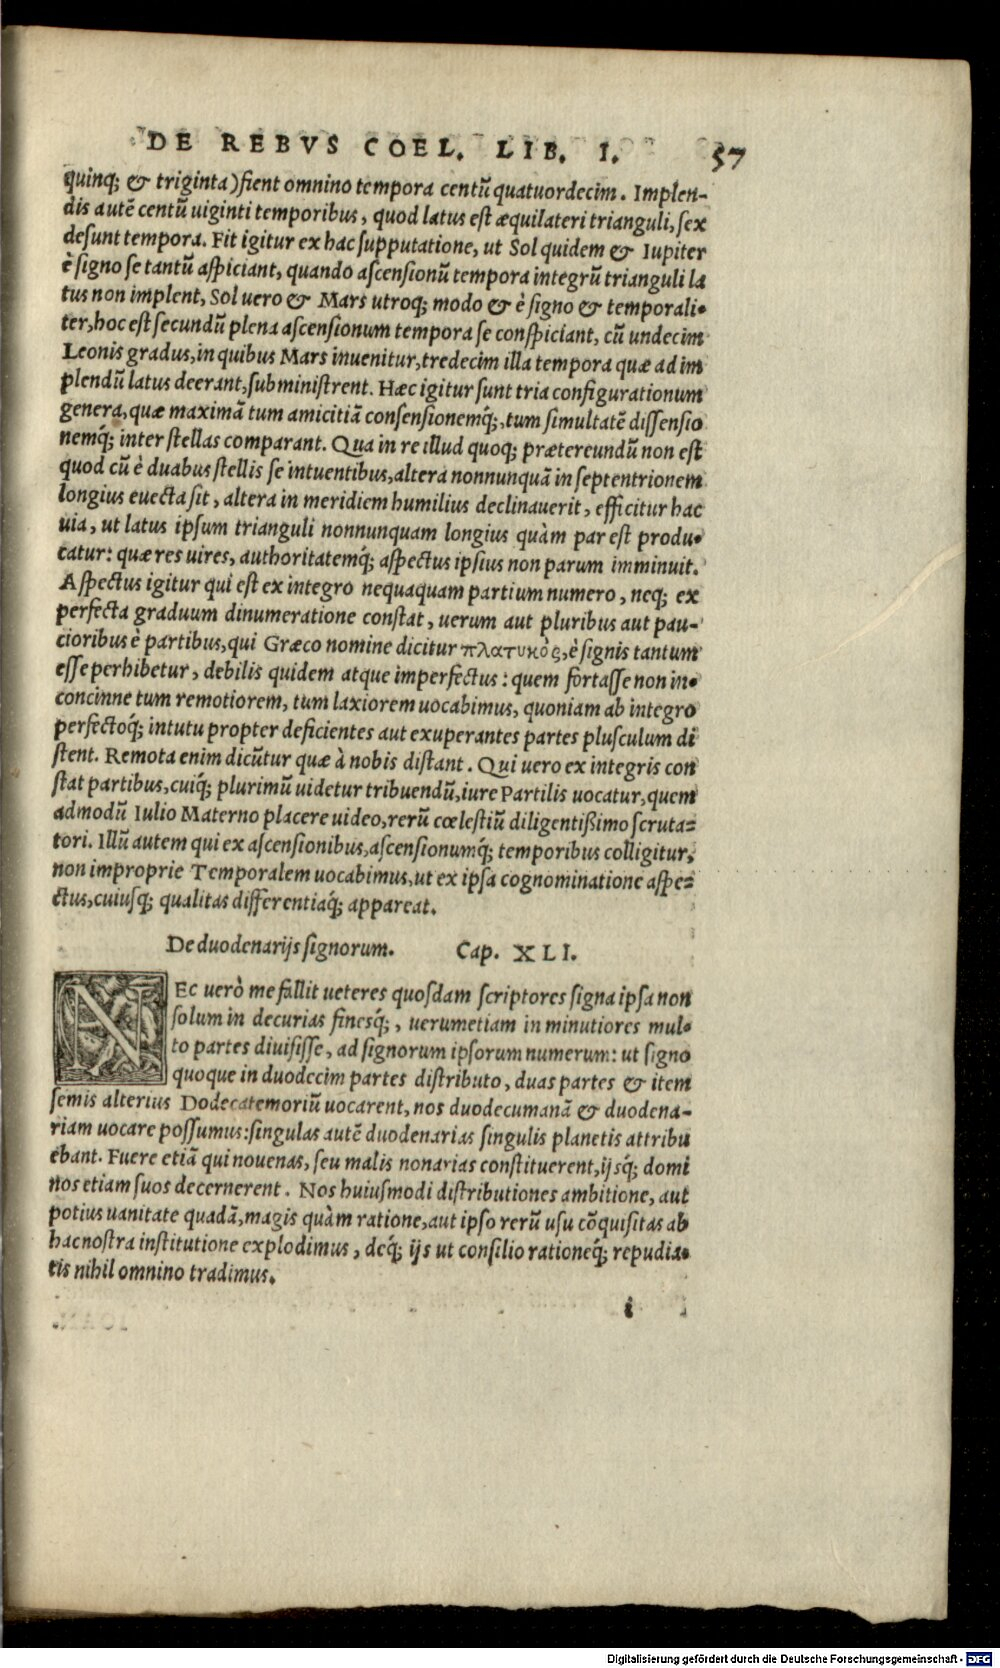 DE REBVS COEL. LIB. I. 57
quinq; & triginta) fient omnino tempora centũ quatuordecim. Implen-
dis autẽ centũ uiginti temporibus, quod latus est æquilateri trianguli, sex
desunt tempora. Fit igitur ex hac supputatione, ut Sol quidem & Iupiter
è signo se tantũ aspiciant, quando ascensionũ tempora integrũ trianguli la
tus non implent, Sol uero & Mars utroq; modo & è signo & temporali-
ter, hoc est secundũ plena ascensionum tempora se conspiciant, cũ undecim
Leonis gradus, in quibus Mars inuenitur, tredecim illa tempora quæ ad im
plendũ latus deerant, subministrent. Hæc igitur sunt tria configurationum
genera, quæ maximã tum amicitiã consensionemq́;, tum simultatẽ dissensio
nemq́; inter stellas comparant. Qua in re illud quoq; prætereundũ non est
quod cũ è duabus stellis se intuentibus, altera nonnunquã in septentrionem
longius euecta sit, altera in meridiem humilius declinauerit, efficitur hac
uia, ut latus ipsum trianguli nonnunquam longius quàm par est produ-
catur: quæ res uires, authoritatemq́; aspectus ipsius non parum imminuit.
Aspectus igitur qui est ex integro nequaquam partium numero, neq; ex
perfecta graduum dinumeratione constat, uerum aut pluribus aut pau-
cioribus è partibus, qui Græco nomine dicitur πλατυκὸς, è signis tantum
esse perhibetur, debilis quidem atque imperfectus: quem fortasse non in-
concinne tum remotiorem, tum laxiorem uocabimus, quoniam ab integro
perfectoq́; intutu propter deficientes aut exuperantes partes plusculum di
stent. Remota enim dicũtur quæ à nobis distant. Qui uero ex integris con
stat partibus, cuiq́; plurimũ uidetur tribuendũ, iure Partilis uocatur, quem
admodũ Iulio Materno placere uideo, rerũ cœlestiũ diligentißimo scruta-
tori. Illũ autem qui ex ascensionibus, ascensionumq́; temporibus colligitur,
non improprie Temporalem uocabimus, ut ex ipsa cognominatione aspe-
ctus, cuiusq; qualitas differentiaq́; appareat.
De duodenarijs signorum. Cap. XLI.
NEc uerò me fallit ueteres quosdam scriptores signa ipsa non
solum in decurias finesq́;, uerumetiam in minutiores mul-
to partes diuisisse, ad signorum ipsorum numerum: ut signo
quoque in duodecim partes distributo, duas partes & item
semis alterius Dodecatemoriũ uocarent, nos duodecumanã & duodena-
riam uocare possumus: singulas autẽ duodenarias singulis planetis attribu
ebant. Fuere etiã qui nouenas, seu malis nonarias constituerent, ijsq́; domi
nos etiam suos decernerent. Nos huiusmodi distributiones ambitione, aut
potius uanitate quadã, magis quàm ratione, aut ipso rerũ usu cõquisitas ab
hac nostra institutione explodimus, deq́; ijs ut consilio rationeq́; repudia-
tis nihil omnino tradimus.
i
Digitalisierung gefördert durch die Deutsche Forschungsgemeinschaft - DFG